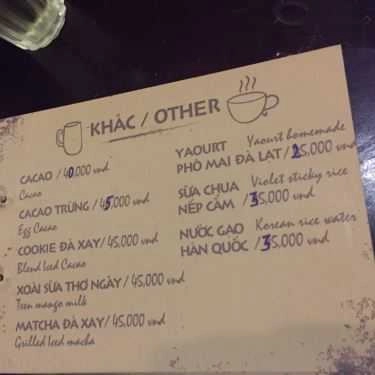 KHÁC / OTHER
CACAO / 40.000 vnd
Cacao
CACAO TRỨNG / 45.000 vnd
Egg Cacao
COOKIE ĐÁ XAY / 45.000 vnd
Blend Iced Cacao
XOÀI SỮA THƠ NGÂY / 45.000 vnd
Teen mango milk
MATCHA ĐÁ XAY / 45.000 vnd
Grilled Iced macha
YAOURT Yaourt homemade
PHÔ MAI ĐÀ LẠT / 25.000 vnd
SỮA CHUA Violet sticky rice
NẾP CẨM / 35.000 vnd
NƯỚC GẠO Korean rice water
HÀN QUỐC / 35.000 vnd